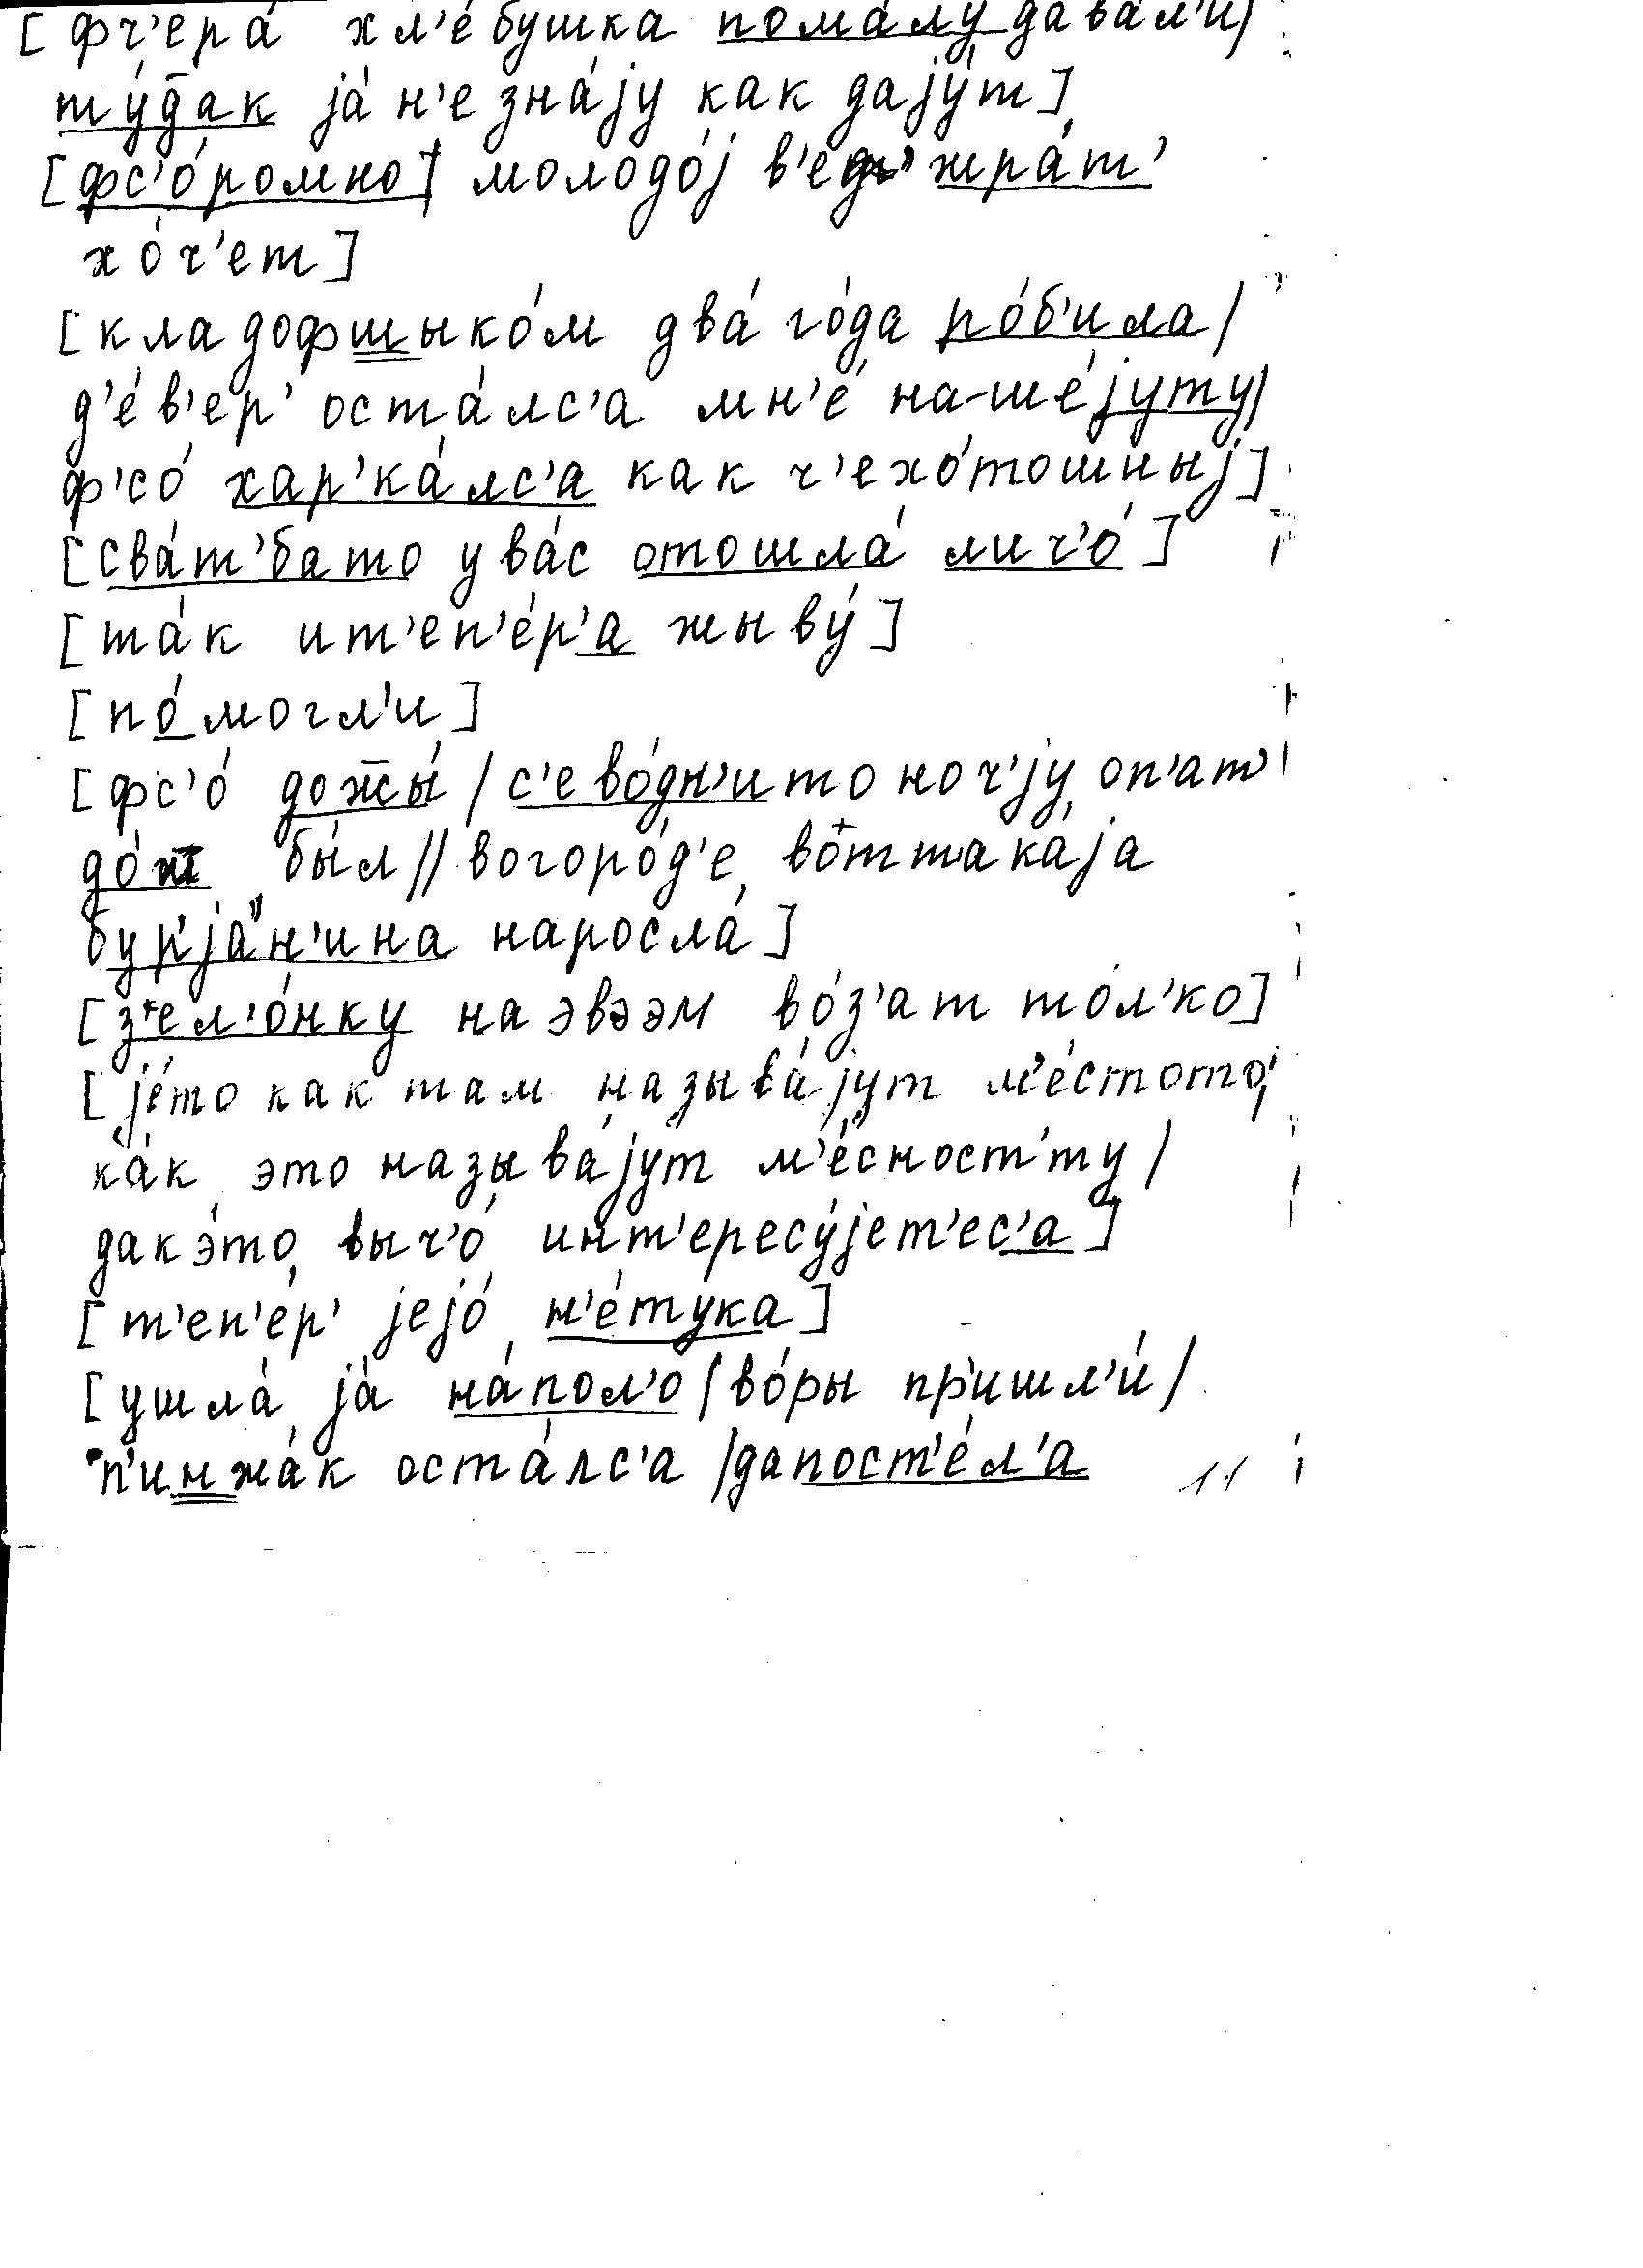 [фч'ера́ хл'е́бушка пома́лу дава́л'и/
ту́дак ја́ н'е зна́ју как дају́т]
[фс'о́ромно] молодо́ј в'ед' жра́т'
хо́ч'ет]
[кладофшыко́м два́ го́да ро́б'ила/
д'е́в'ер' оста́лс'а мн'е́ на-ше́јуту/
ф'со́ хар'ка́лс'а как ч'ехо́тошныј]
[сва́т'бато ува́с отошла́ лич'о́]
[та́к ит'еп'е́р'а жыву́]
[по́могл'и]
[фс'о́ дож̅ы́/с'ево́дн'ито ноч'ју́ оп'ат'
до́ш̅ бы́л//вогоро́д'е во́ттака́ја
бурја́н'ина наросла́]
[з'ел'о́нку на эвээм во́з'ат то́л'ко]
[је́то как там называ́јут м'е́стото/
ка́к это называ́јут м'е́сност'ту/
дакэ́то выч'о́ инт'ересу́јет'ес'а]
[т'еп'е́р' јејо́ н'е́тука]
[ушла́ ја́ на́пол'о/во́ры пр'ишл'и́/
п'инжа́к оста́лс'а/дапост'е́л'а
11